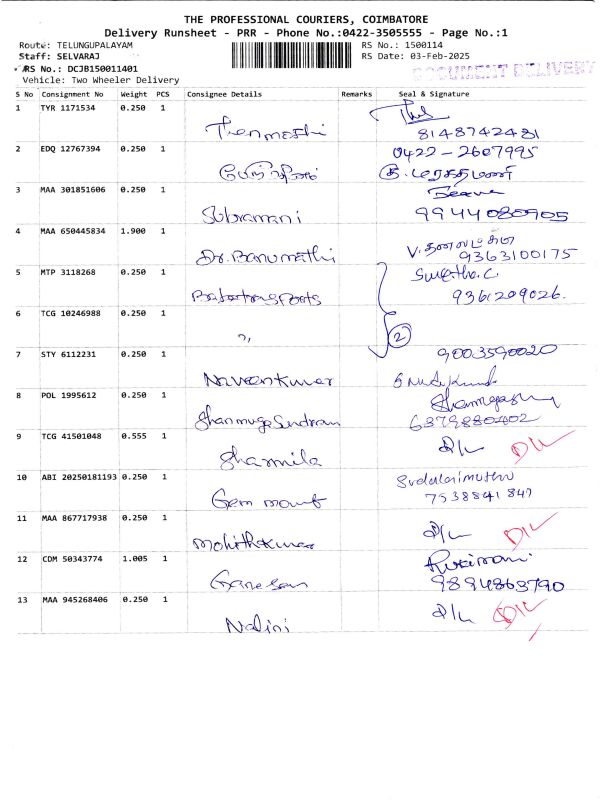 THE PROFESSIONAL COURIERS, COIMBATORE
Delivery Runsheet - PRR - Phone No.:0422-3505555 - Page No.:1
Route: TELUNGUPALAYAM
RS No.: 1500114
Staff: SELVARAJ
RS Date: 03-Feb-2025
RS No.: DCJB150011401
DOCUMENT DELIVERY
Vehicle: Two Wheeler Delivery
S No Consignment No Weight PCS Consignee Details Remarks Seal & Signature
1 TYR 1171534 0.250 1
Thenmozhi 8148742481
2 EDQ 12767394 0.250 1 0422-2607995
3 MAA 301851606 0.250 1
Subramani 9944080905
4 MAA 650445834 1.900 1
Dr. Banumathi 9363100175
5 MTP 3118268 0.250 1
Swetha.C.
9361209026.
6 TCG 10246988 0.250 1
" 2
7 STY 6112231 0.250 1 9003590020
Naveenkumar
8 POL 1995612 0.250 1
Shanmuga Sundram 6379880402
9 TCG 41501048 0.555 1 D/L D/L
Sharmila
10 ABI 20250181193 0.250 1 Sudalaimuthu
Gem mount 7538841847
11 MAA 867717938 0.250 1 D/L D/L
Mohithkumar
12 CDM 50343774 1.005 1
Ganesan 9894863790
13 MAA 945268406 0.250 1 D/L D/L
Nalini